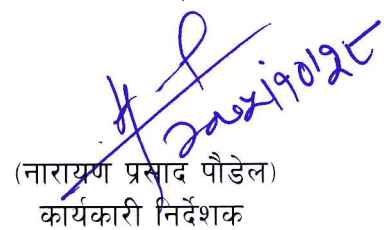 २०७५।१०।२८
(नारायण प्रसाद पौडेल)
कार्यकारी निर्देशक